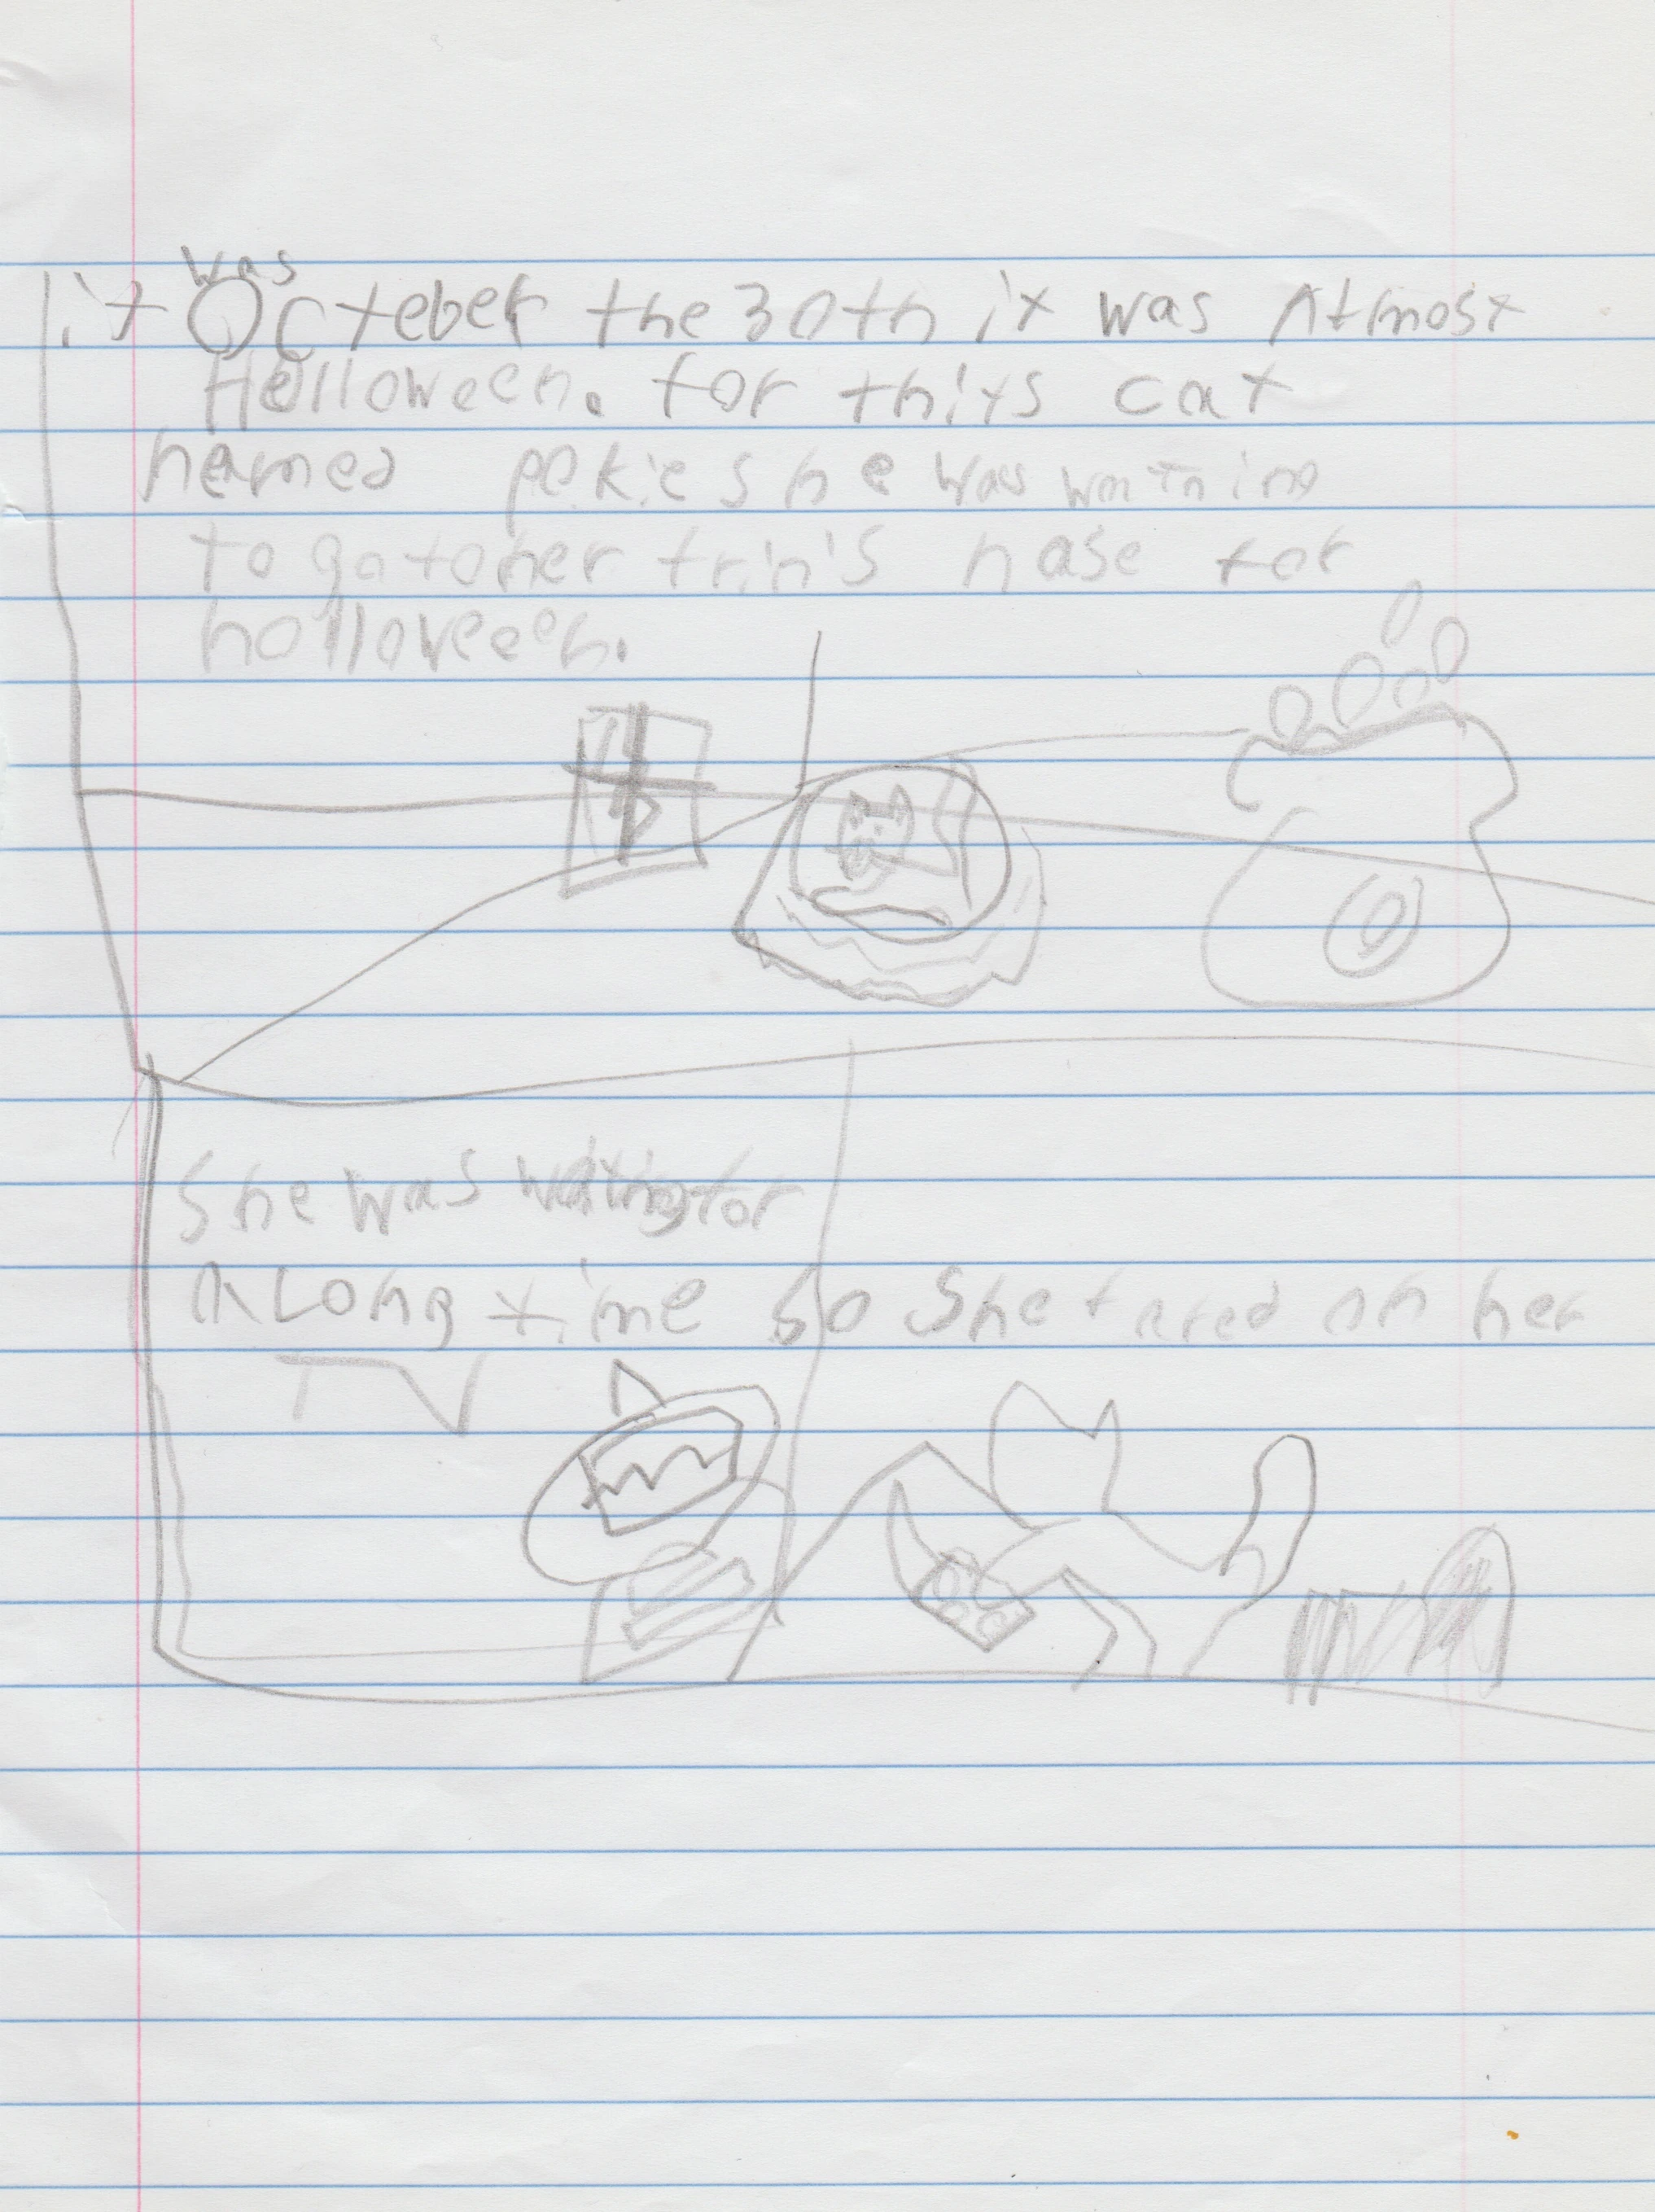 it was Octeber the 30th it was Almost
Holloween. for thits cat
named pekie she was
to go to her frin's hase for
holloween.
She was waiting for
A Long time so she t ered on her
TV